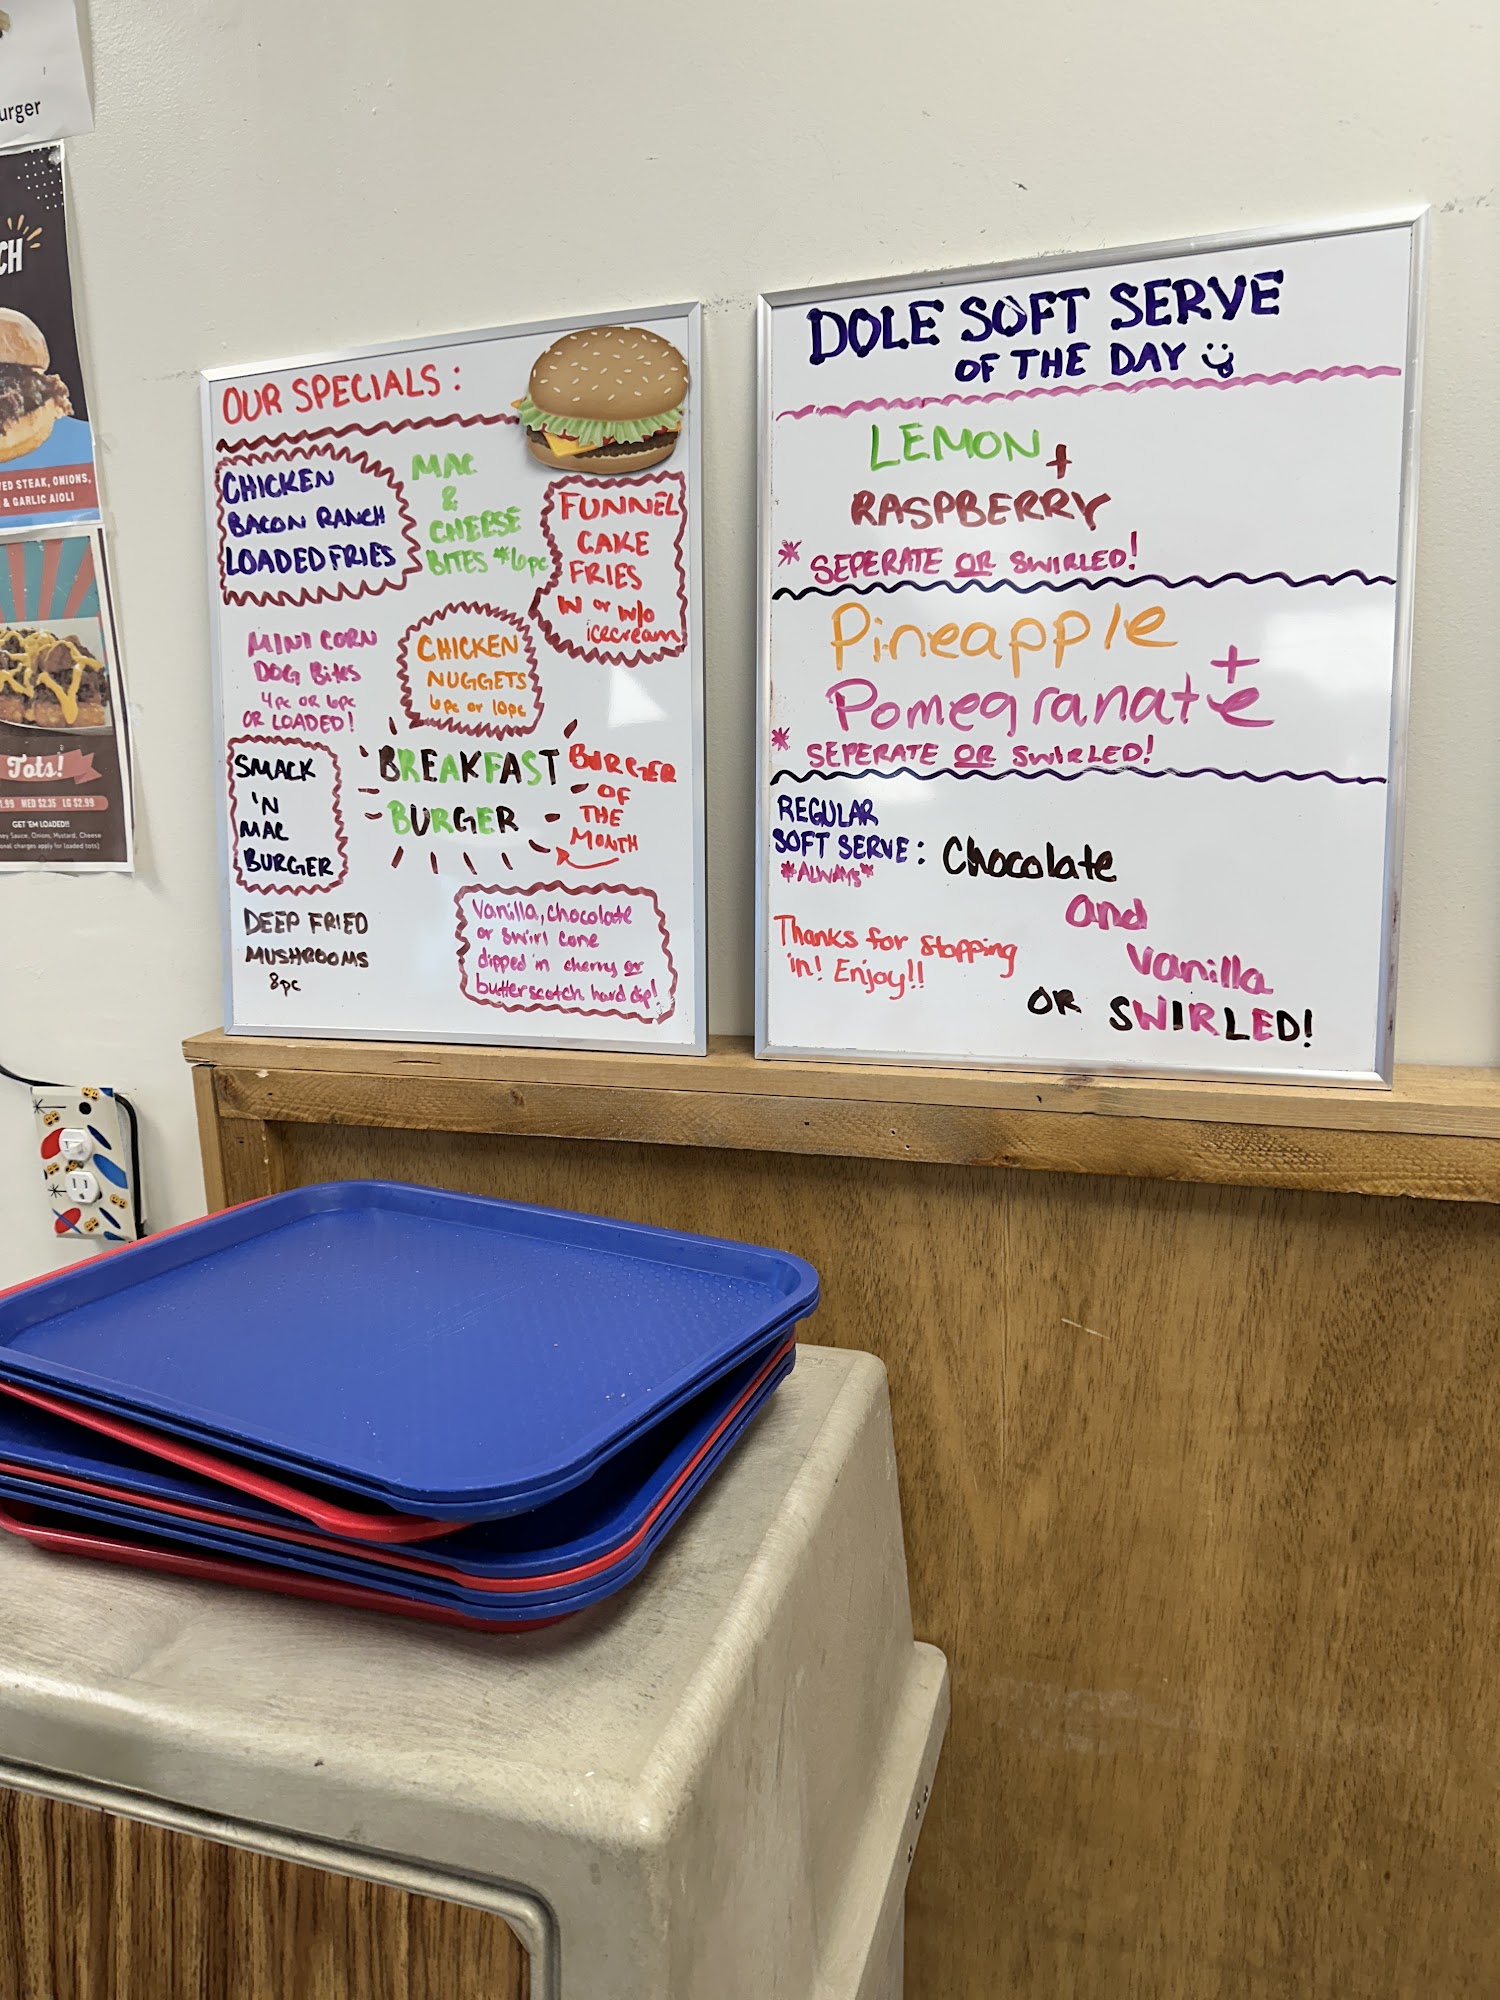 urger
CH
VED STEAK, ONIONS,
& GARLIC AIOLI
Tots!
1.99 MED $2.35 LG $2.99
GET 'EM LOADED!!
ney Sauce, Onions, Mustard, Cheese
onal charges apply for loaded tots)
OUR SPECIALS:
CHICKEN
BACON RANCH
LOADED FRIES
MAC
&
CHEESE
BITES *6pc
FUNNEL
CAKE
FRIES
W or w/o
icecream
MINI CORN
DOG Bites
4pc OR 6pc
OR LOADED!
CHICKEN
NUGGETS
6pc or 10pc
SMACK
'N
MAC
BURGER
BREAKFAST
BURGER
BURGER
OF
THE
MONTH
DEEP FRIED
MUSHROOMS
8pc
Vanilla, chocolate
or swirl cone
dipped in cherry or
butterscotch hard dip!
DOLE SOFT SERVE
OF THE DAY
LEMON +
RASPBERRY
* SEPERATE OR SWIRLED!
Pineapple
+
Pomegranate
* SEPERATE OR SWIRLED!
REGULAR
SOFT SERVE: Chocolate
*ALWAYS*
and
Vanilla
OR SWIRLED!
Thanks for stopping
in! Enjoy!!